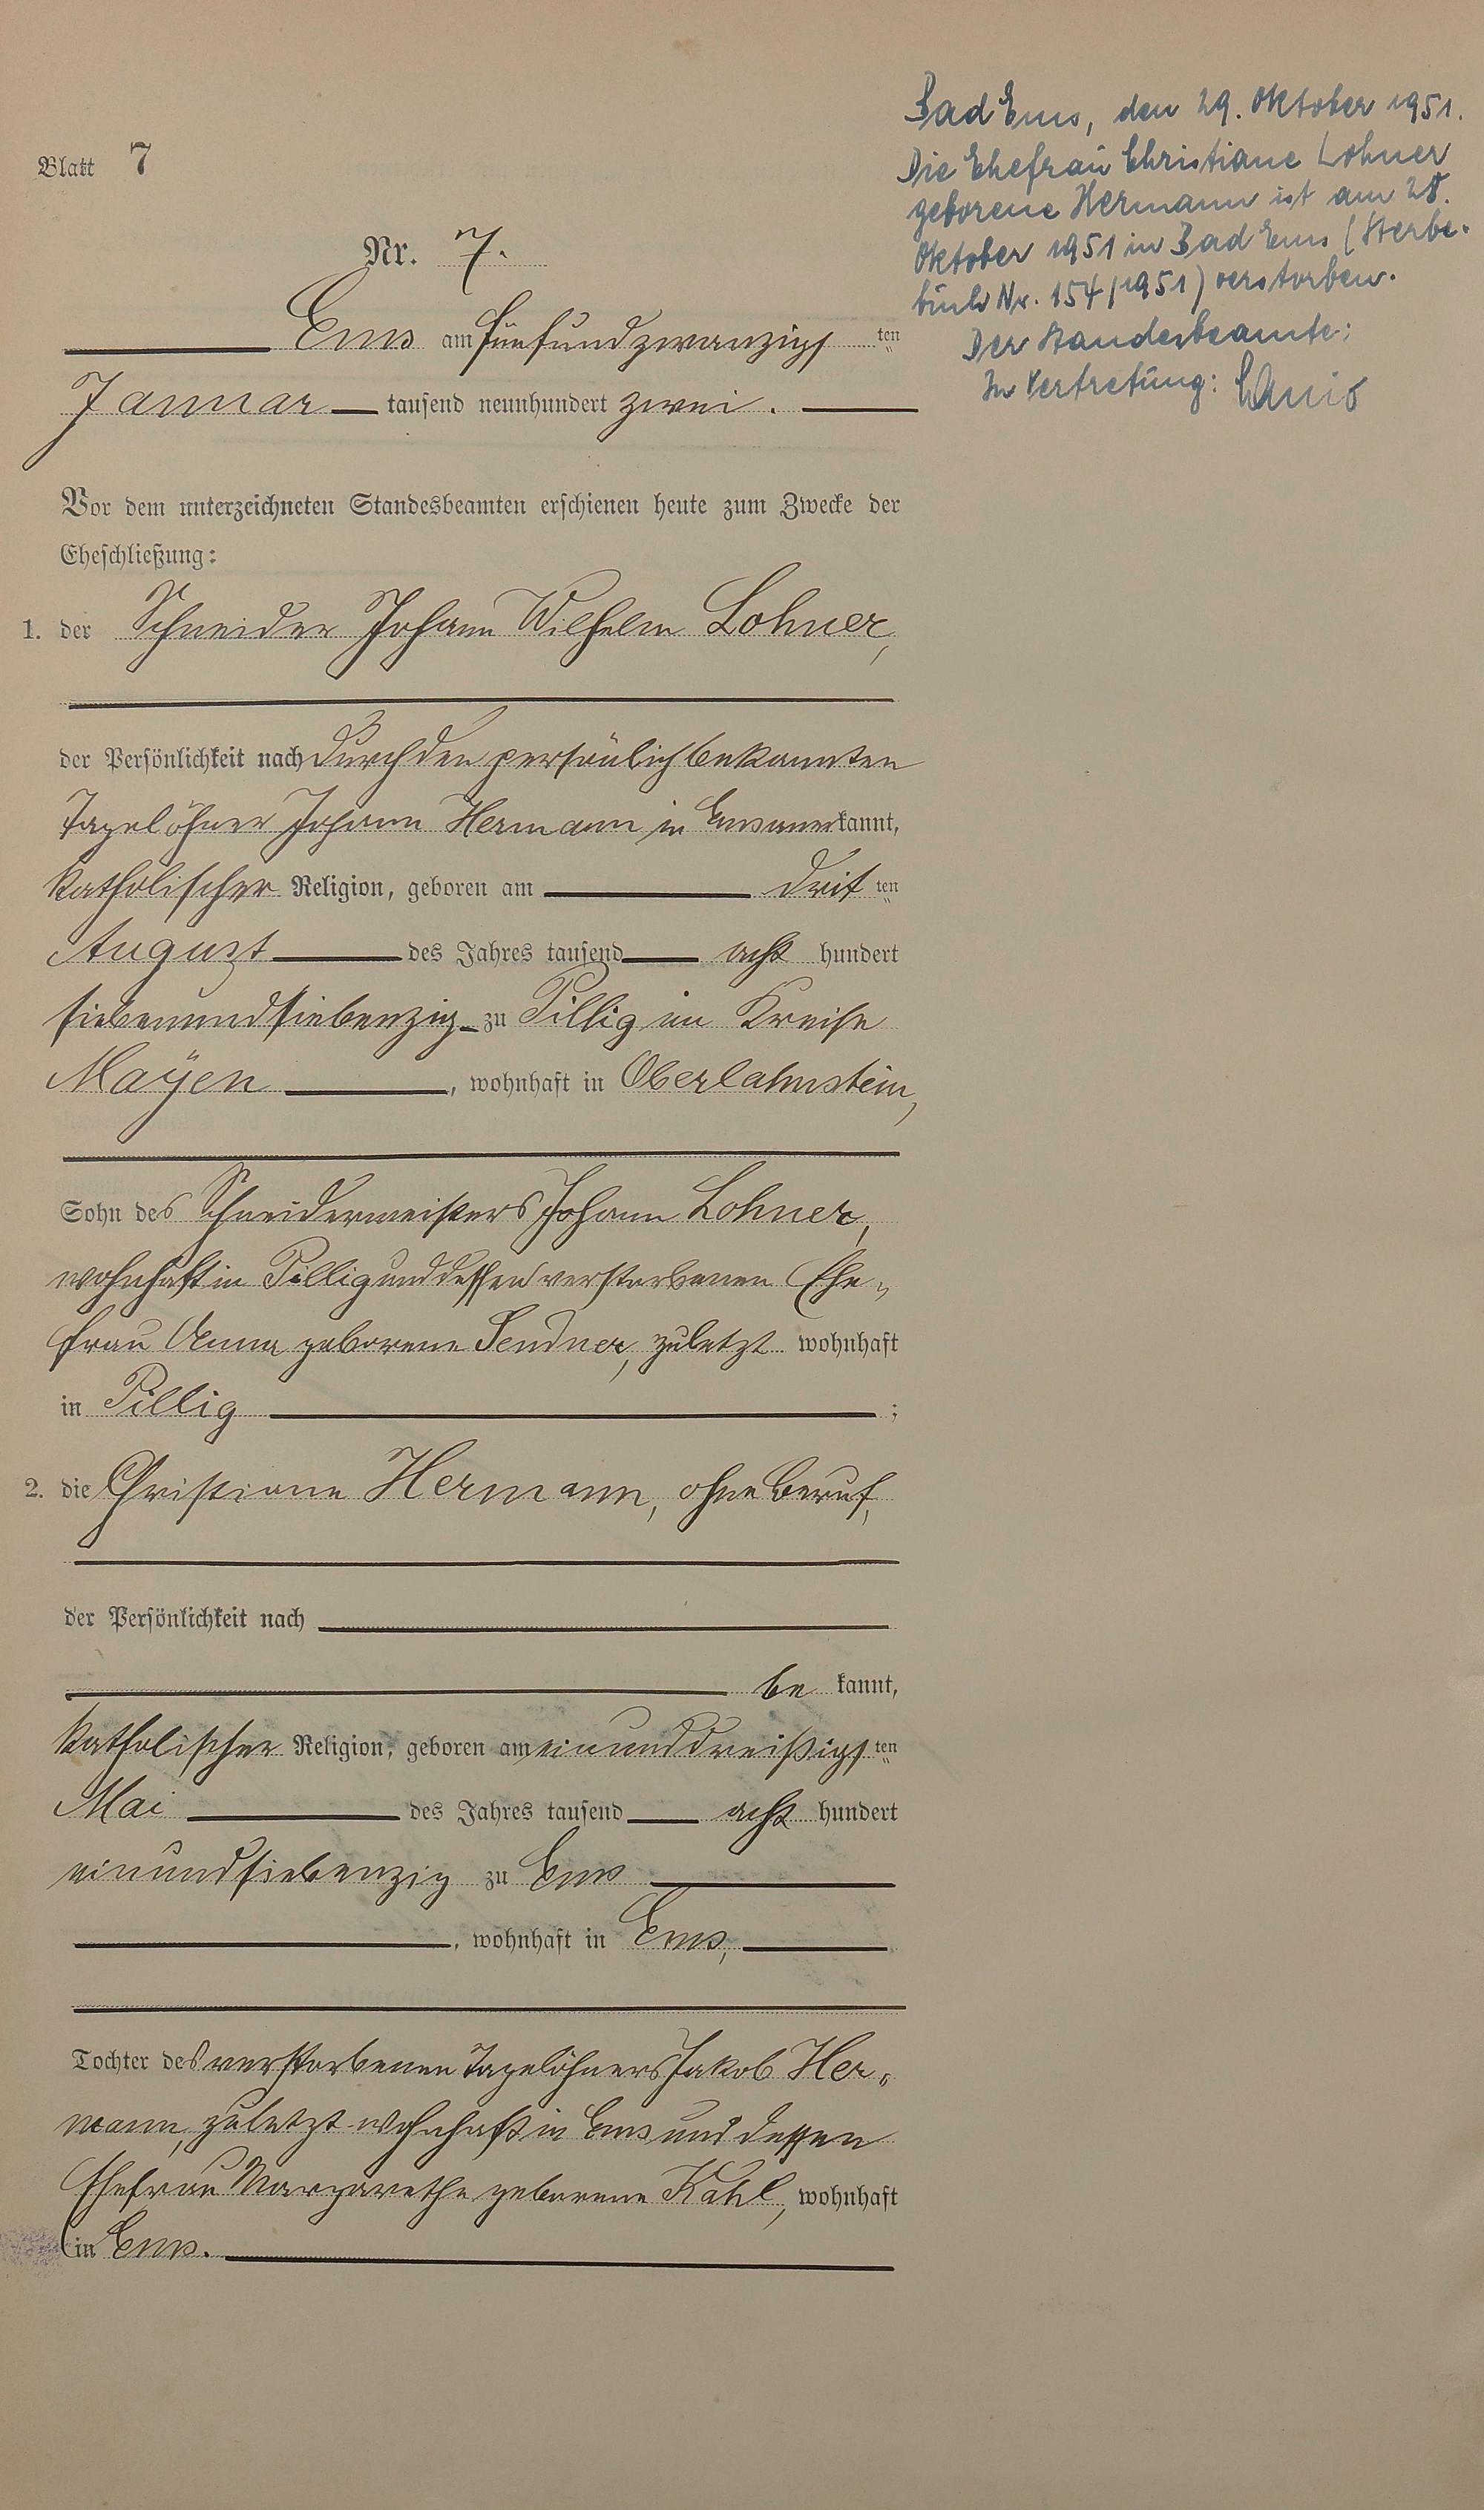 Blatt 7
Nr. 7.
Ems am fünfundzwanzigs ten
Januar tausend neunhundert zwei.
Vor dem unterzeichneten Standesbeamten erschienen heute zum Zwecke der
Eheschließung:
1. der Schneider Johann Wilhelm Lohner,
der Persönlichkeit nach durch den persönlich bekannten
Tagelöhner Johann Hermann in Ems anerkannt,
katholischer Religion, geboren am drit ten
August des Jahres tausend acht hundert
siebenundsiebenzig zu Pillig im Kreise
Mayen, wohnhaft in Oberlahnstein,
Sohn des Schneidermeisters Johann Lohner,
wohnhaft in Pillig und dessen verstorbenen Ehe-
frau Anna geborene Sendner, zuletzt wohnhaft
in Pillig ;
2. die Christiane Hermann, ohne Beruf,
der Persönlichkeit nach
be kannt,
katholischer Religion, geboren am einunddreißigs ten
Mai des Jahres tausend acht hundert
einundsiebenzig zu Ems
, wohnhaft in Ems,
Tochter des verstorbenen Tagelöhners Jakob Her-
mann, zuletzt wohnhaft in Ems und dessen
Ehefrau Margarethe geborene Kahl, wohnhaft
in Ems.
Bad Ems, den 29. Oktober 1951.
Die Ehefrau Christiane Lohner
geborene Hermann ist am 28.
Oktober 1951 in Bad Ems (Sterbe-
buch Nr. 154/1951) verstorben.
Der Standesbeamte:
In Vertretung: